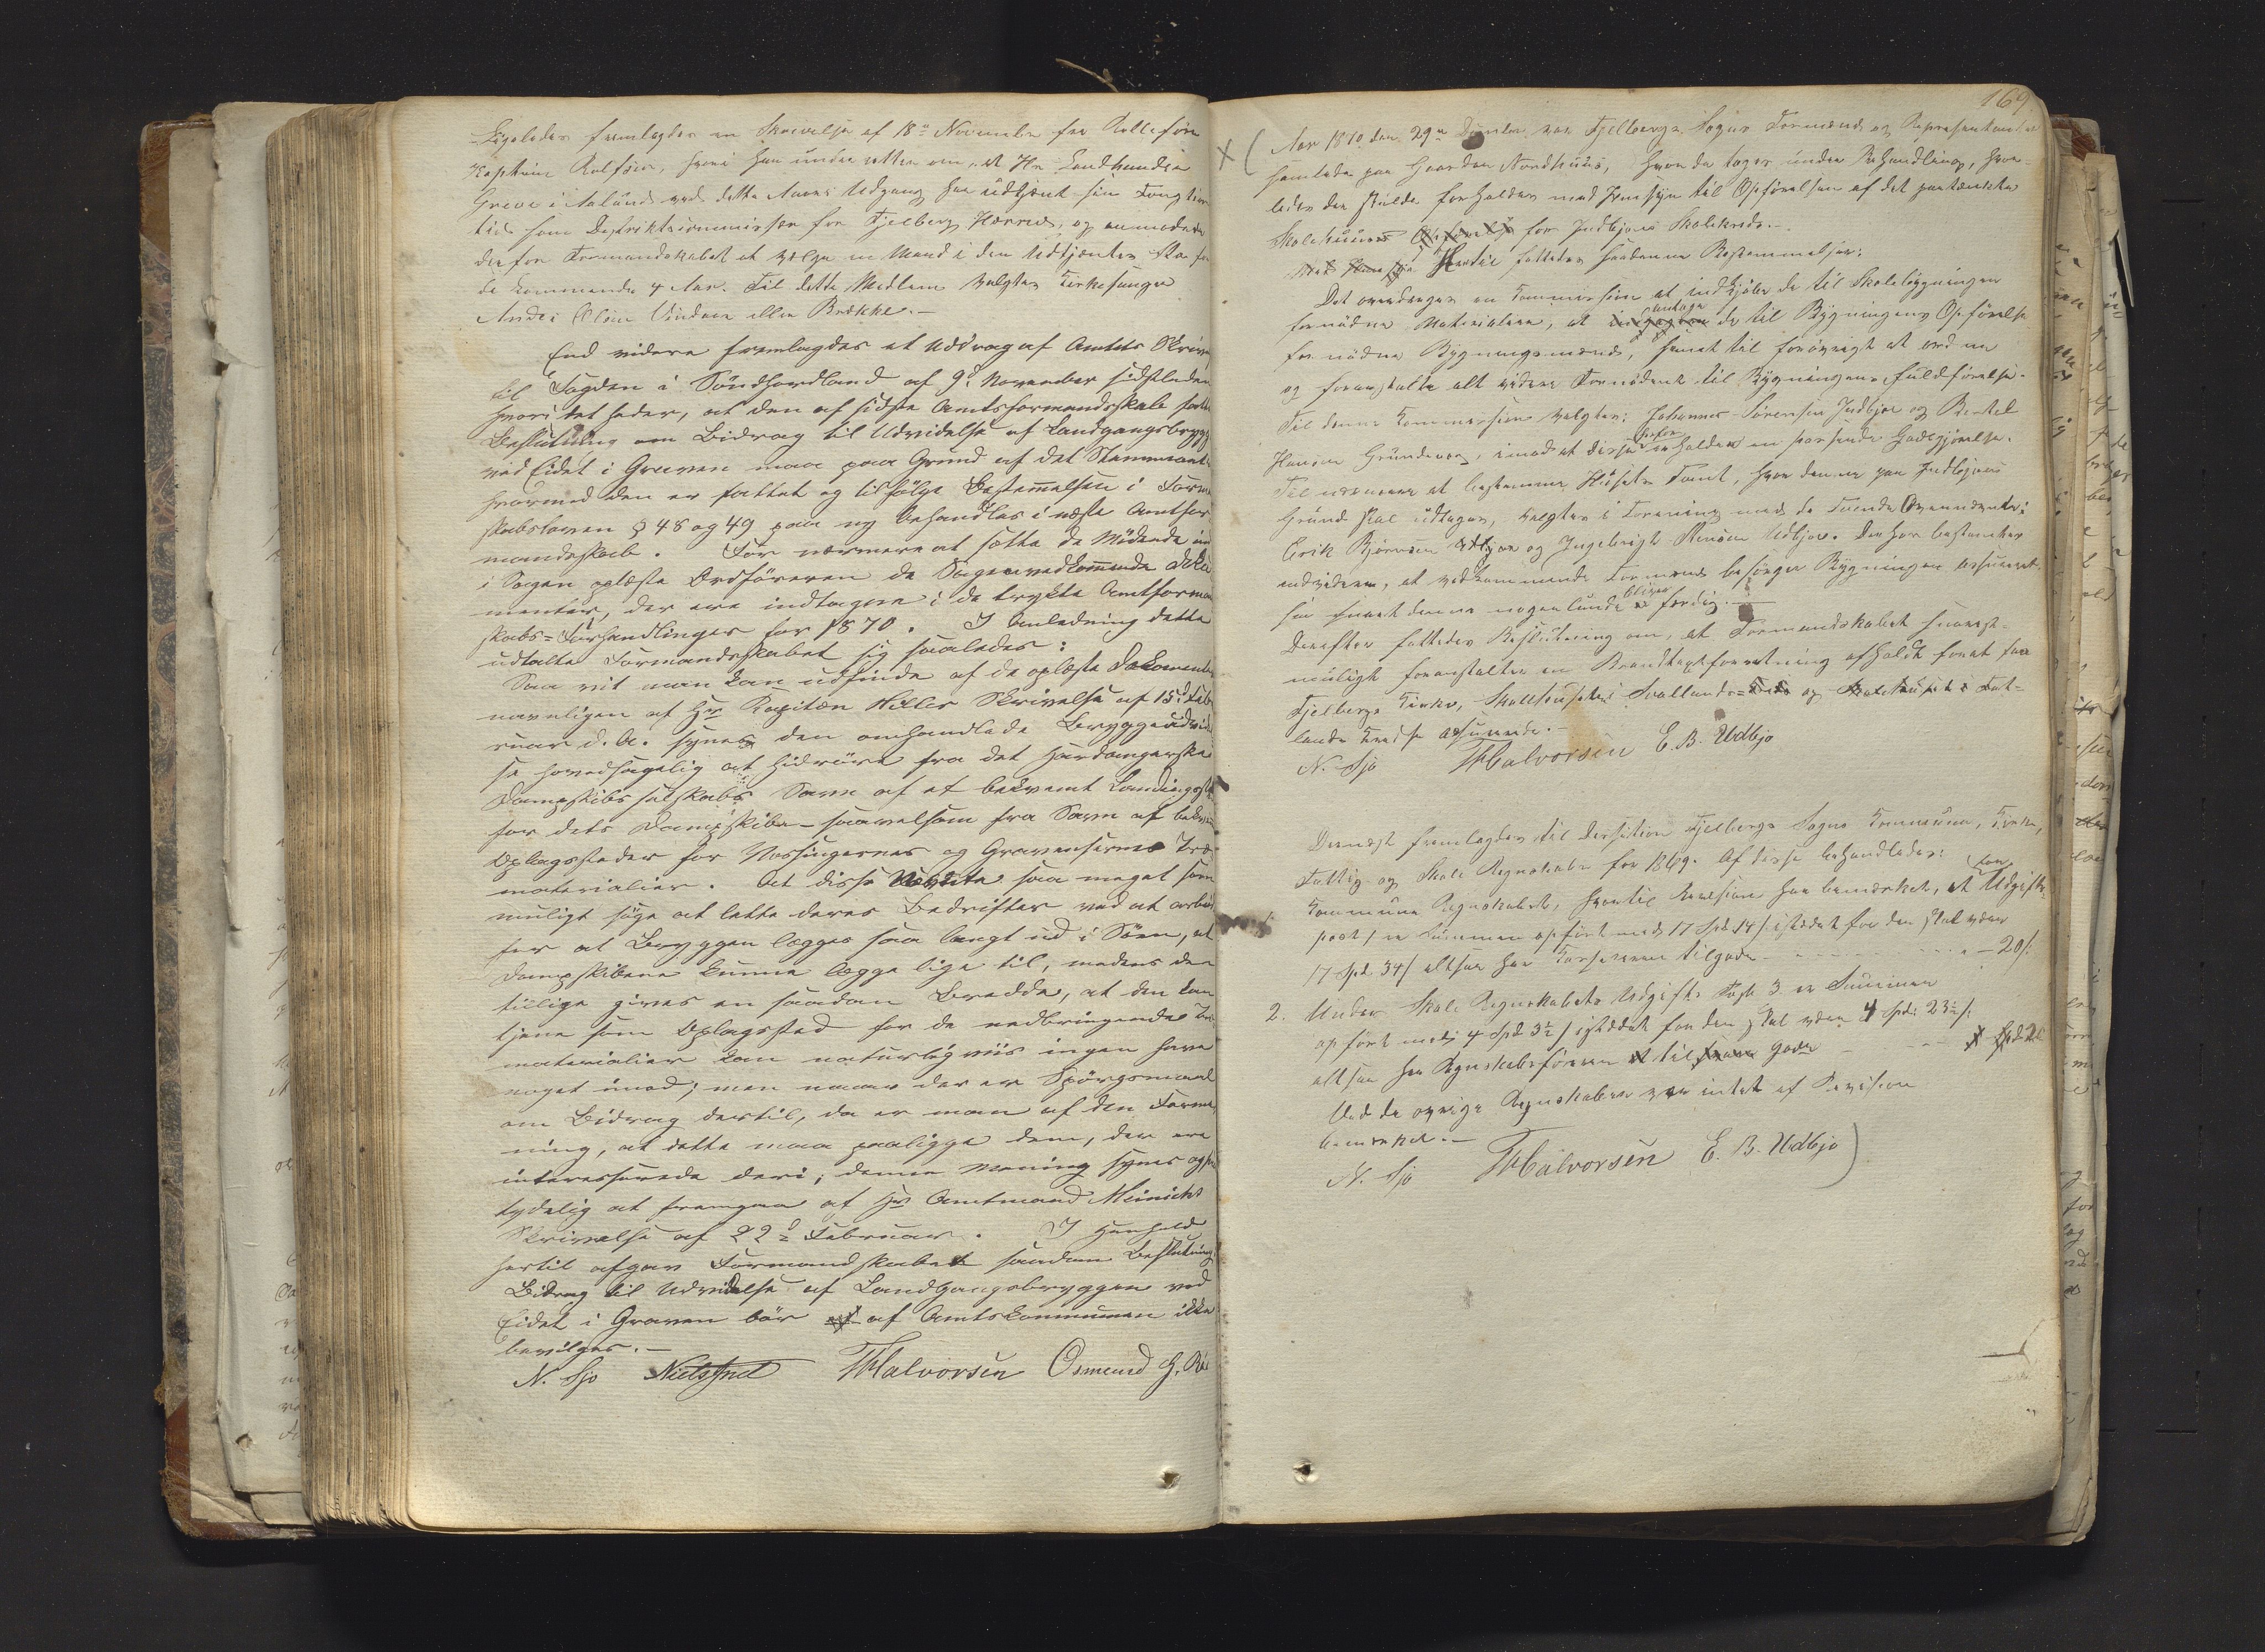 Ligeledes fremlagdes en Skrivelse af 18de November fra Rulleförer
Kaptein Rolfsen, hvori han underretter om, at Hr Landhandler
Greve i Aalund ved dette Aars Udgang har udtjent sin
tid som Distriktskommissær for Fjelberg Herred, og anmoder
derfor Formandskabet at vælge en Mand i den Udtjentes Sted for
de kommende 4 Aar. Til dette Medlem valgtes Kirkesanger
Anders Olsen Vindenes eller Brekke.-
End videre fremlagdes et Uddrag af Amtets Skrivelse
til Fogden i Söndhordland af 9de November sidstleden
hvori det heder, at den af sidste Amtsformandskab fattede
Beslutning om Bidrag til Udvidelse af Landgangsbryggen
ved Eidet i Graven maa paa Grund af det Stemmeantal
hvormed den er fattet og tilfölge Bestemmelsen i Formand-
skabsloven § 48 og 49 paa ny behandles i næste Amtsfor-
mandskab. For nærmere at sætte de Mödende ind
i Sagen oplæste Ordföreren de Sagen vedkommende Doku-
menter, der ere indtagne i de trykte Amtsformand-
skabs-Forhandlinger for 1870. I Anledning dette
udtalte Formandskabet sig saaledes:
Saa vit man kan udfinde af de oplæste Dokumenter
navnligen af Hr Kapitæn Willes Skrivelse af 15de Feb-
ruar d. A. synes den omhandlede Bryggeudvidel-
se hovedsagelig at hidröre fra det Hardangerske
Dampskibsselskabs Savn af et bekvemt Landingssted
for dets Dampskibe - saavelsom fra Savn af bekvemt
Oplagssteder for Vossingernes og Gravensernes Træ-
materialier. At disse Nævnte saa meget som
muligt söge at lette deres Bedrifter ved at arbeide
for at Bryggen lægges saa langt ud i Söen, at
Dampskibene kunne lægge lige til, medens der
tillige gives en saadan Bredde, at den kan
tjene som Oplagssted for de nedbringende Træ-
materialier kan naturligviis ingen have
noget imod; men naar der er Spörgsmaal
om Bidrag dertil, da er man af den Forme-
ning, at dette maa paaligge dem, der ere
interesserede deri; denne Mening synes ogsaa
tydelig at fremgaa af Hr Amtmand Meinichs
Skrivelse af 22de Februar. I Henhold
hertil afgav Formandskabet saadan Beslutning
Bidrag til Udvidelse af Landgangsbryggen ved
Eidet i Graven bör af Amtskommunen ikke
bevilges.-
N. Sjo Niels Hus THalvorsen Osmund H.
169.
Aar 1870 den 29de December var Fjelbergs Sogns Formænd og Repræsentanter
samlede paa Gaarden Nordhuus, hvor da toges under Behandling, hvor-
ledes der skulde forholdes med Hensyn til Opförelsen af det paatænkte
Skolehuus for Indbjoes Skolekreds.-
Hertil fattedes saadanne Bestemmelser:
Det overdrages en Kommission at indkjöbe de til Skolebygningen
fornödne Materialier, at antage de til Bygningens Opförelse
fornödne Bygningsmænd, samt til forövrigt at ordne
og foranstalte alt videre Fornödent til Bygningens Fuldförelse.
Til denne Kommission valgtes: Johannes Sörensen Indbjoe og Bertel
Hansen Grundevaag, imod at disse herfor erholder en passende Godtgjörelse.
Til nærmere at bestemme Husets Tomt, hvor denne paa Indbjoes
Grund skal udtages, valgtes i Forening med de Tvende Ovennævnte:
Erik Björnsen Udbjoe og Ingebrigt Steensen Udbjoe. Derhos bestemtes
endvidere, at vedkommende Formænd besörger Bygningen assureret
saa snart denne nogenlunde bliver færdig.-
Derefter fattedes Beslutning om, at Formandskabet snarest-
muligt foranstalter en Brandtaxtforretning afholdt forat faa
Fjelbergs Kirke, Skolehuset i Svallands-Kreds og Skolehuset i
lands Kredse assurerede.-
N. Sjo THalvorsen E. B. Udbjo
Dernæst fremlagdes til Decision Fjelbergs Sogns Kommune, Kirke,
Fattig og Skole Regnskaber for 1869. Af disse behandledes:
1. Kommune Regnskabet, hvortil Revision har bemærket, at for Udgifts-
post 1 er Summen opfört med 17 Spd. 14 s. istedet for den skal være
17 Spd. 34 s altsaa har Kassereren tilgode - - - - - 20 s.
2. Under Skole Regnskabets Udgifts Post 3 er Summen
opfört med 4 Spd. 3½ s istedet for den skal være 4 Spd. 23½ s.
altsaa har Regnskabsföreren tilgode
Ved de övrige Regnskaber var intet af Revision
bemærket.-
N. Sjo THalvorsen E. B. Udbjo